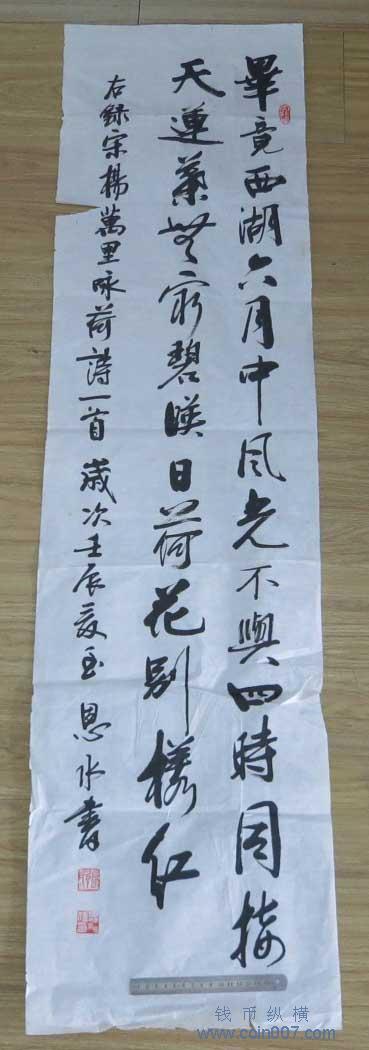 畢竟西湖六月中风光不與四時同接
天蓮葉無窮碧暎日荷花別樣红
右録宋楊萬里咏荷詩一首 歲次壬辰夏至 恩水書
钱币纵横
www.coin007.com